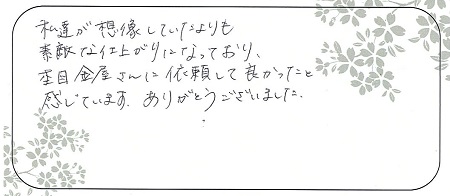 私達が想像していたよりも
素敵な仕上がりになっており、
杢目金屋さんに依頼して良かったと
感じています。ありがとうございました。